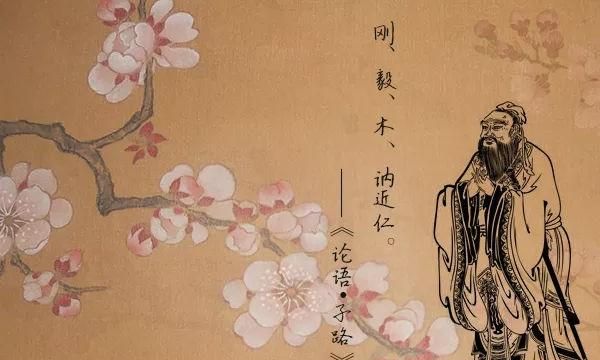 刚、毅、木、讷近仁。
——《论语•子路》